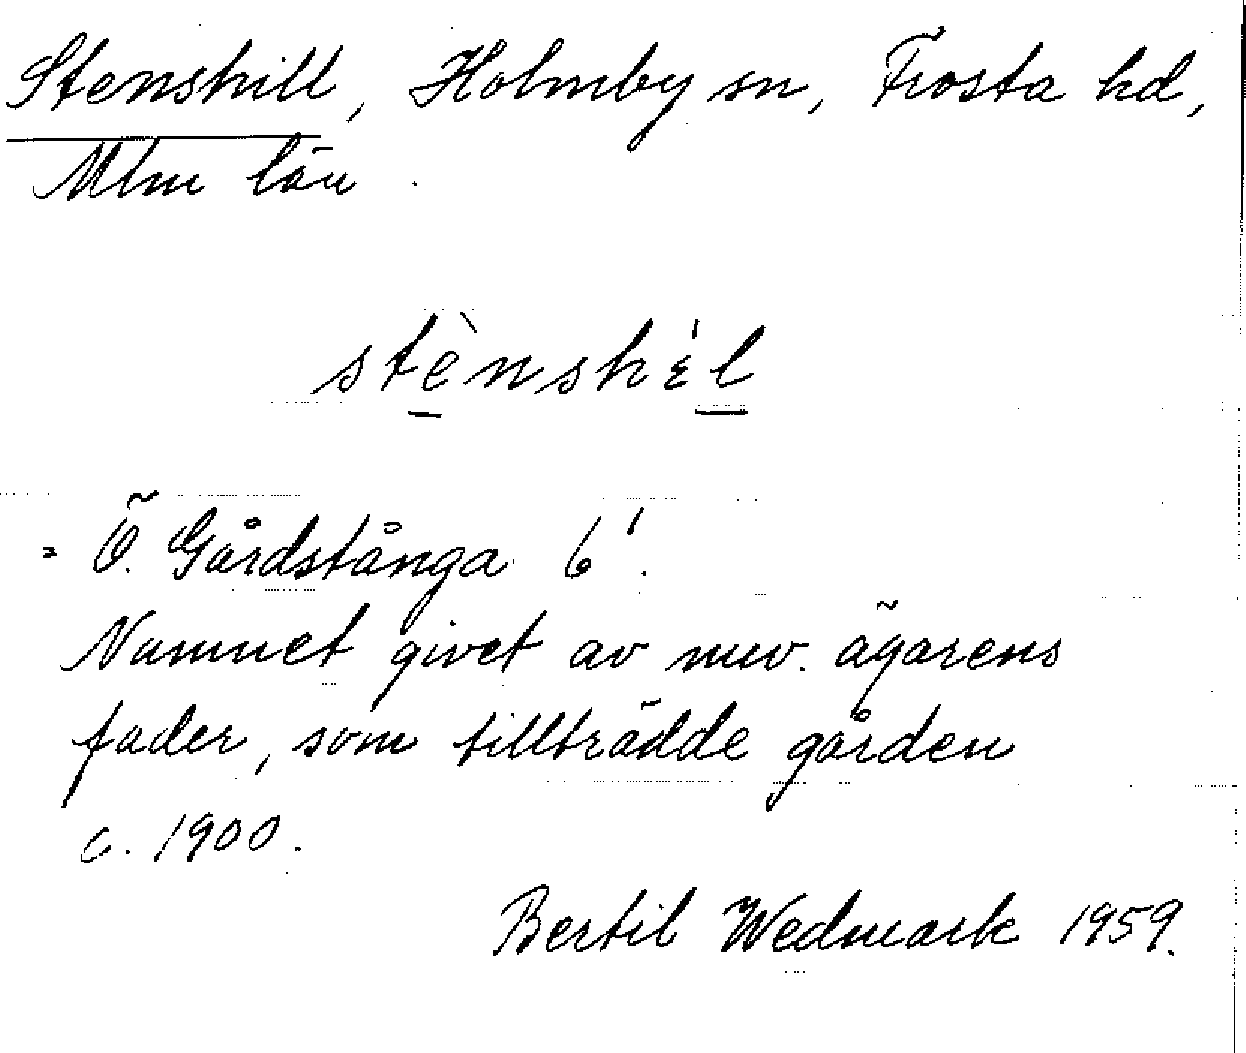 Stenshill, Holmby sn, Frosta hd,
Mlm län.
stènshɛ́l
= Ö. Gårdstånga 6¹.
Namnet givet av nuv. ägarens
fader, som tillträdde gården
c. 1900.
Bertil Wedmark 1959.